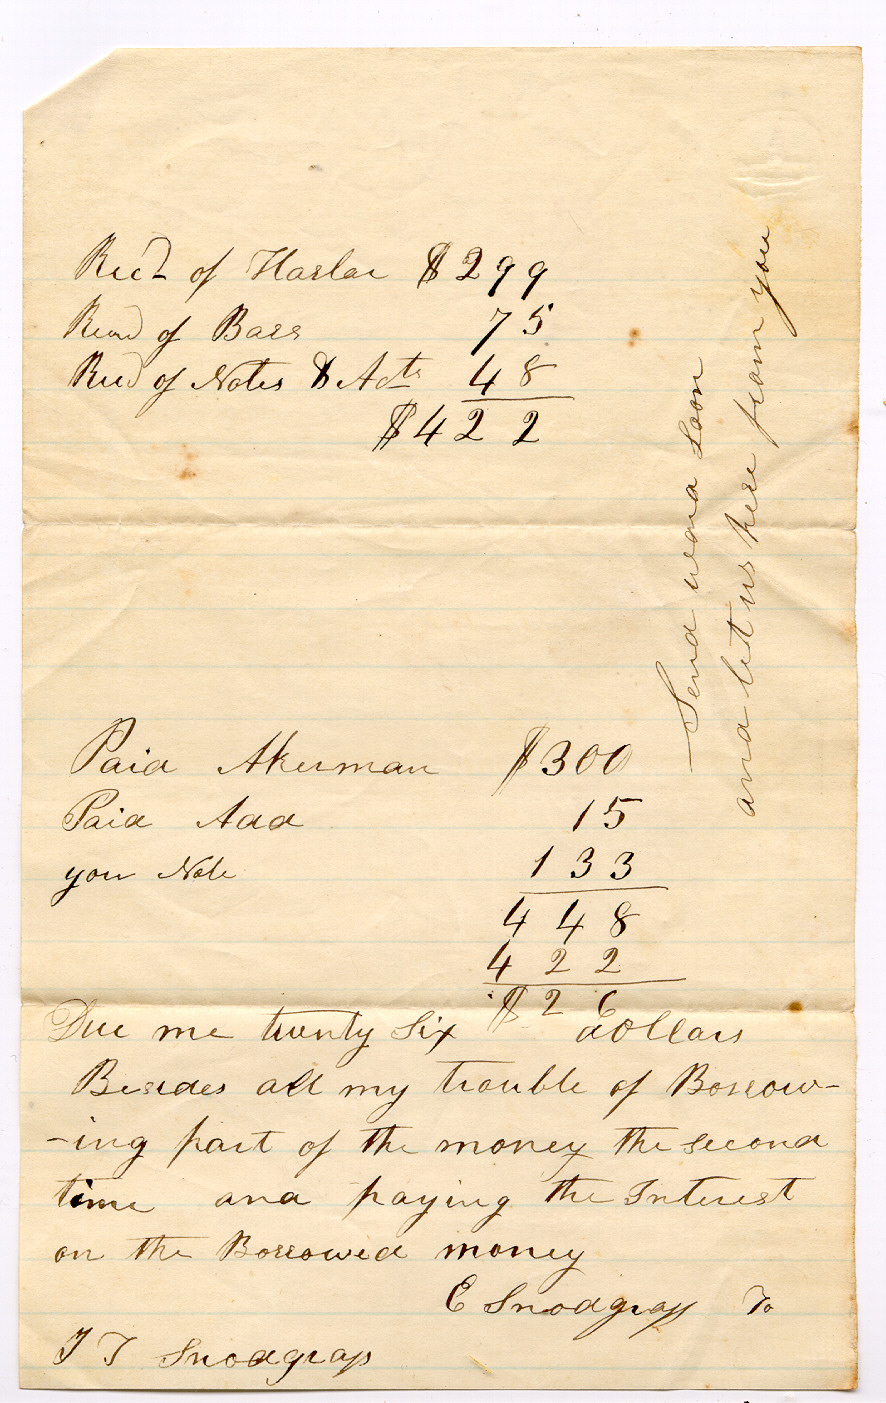 Rec'd of Harlan $299
Recd of Bass 75
Recd of Notes & Acts 48
$422
Paid Akerman $300
Paid Add 15
your Note 133
448
422
$26
Due me twenty six dollars
Besides all my trouble of Borrow-
-ing part of the money the second
time and paying the Interest
on the Borrowed money
E Snodgrass To
Snodgrass
Send word soon
and let us here from you